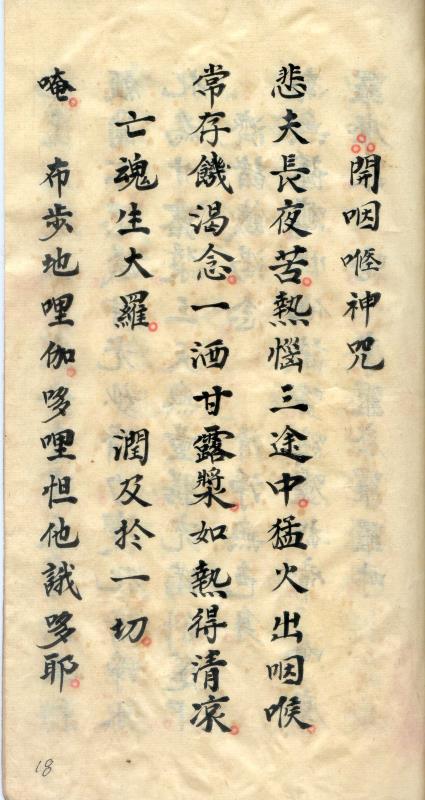 開咽喉神咒
悲夫長夜苦熱惱三途中猛火出咽喉
常存饑渴念一洒甘露漿如熱得清凉
亡魂生大羅 潤及於一切
唵 布步地哩伽哆哩怛他誐哆耶
18